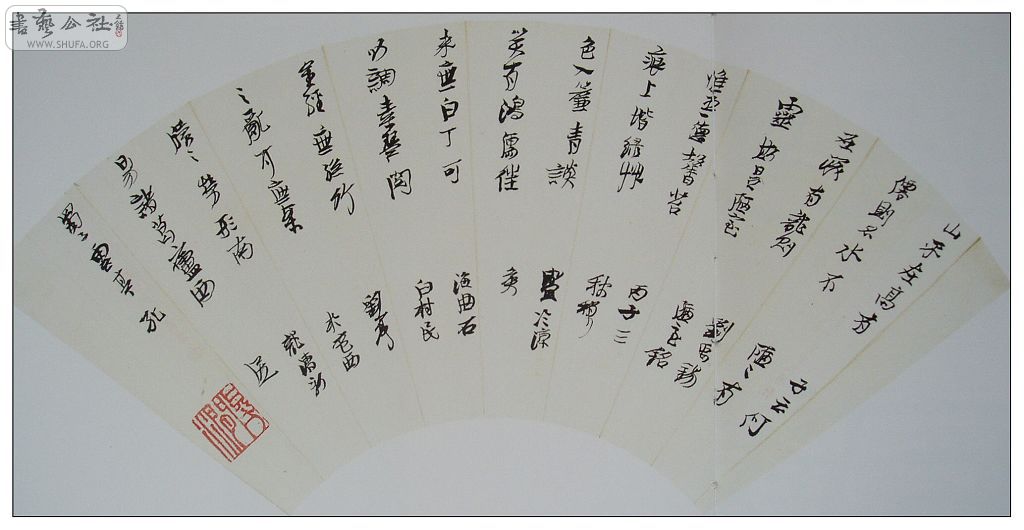 書藝公社
WWW.SHUFA.ORG
山不在高有
僊則名水不
在深有龍則
靈斯是陋室
惟吾德馨苔
痕上階綠艸
色入簾青談
笑有鴻儒往
来無白丁可
以調素琴閱
金經無絲竹
之亂耳無案
牘之勞形南
昜諸葛廬西
蜀子雲亭孔
子云何
陋之有
劉禹錫
陋室銘
丙子三
秋
白村民